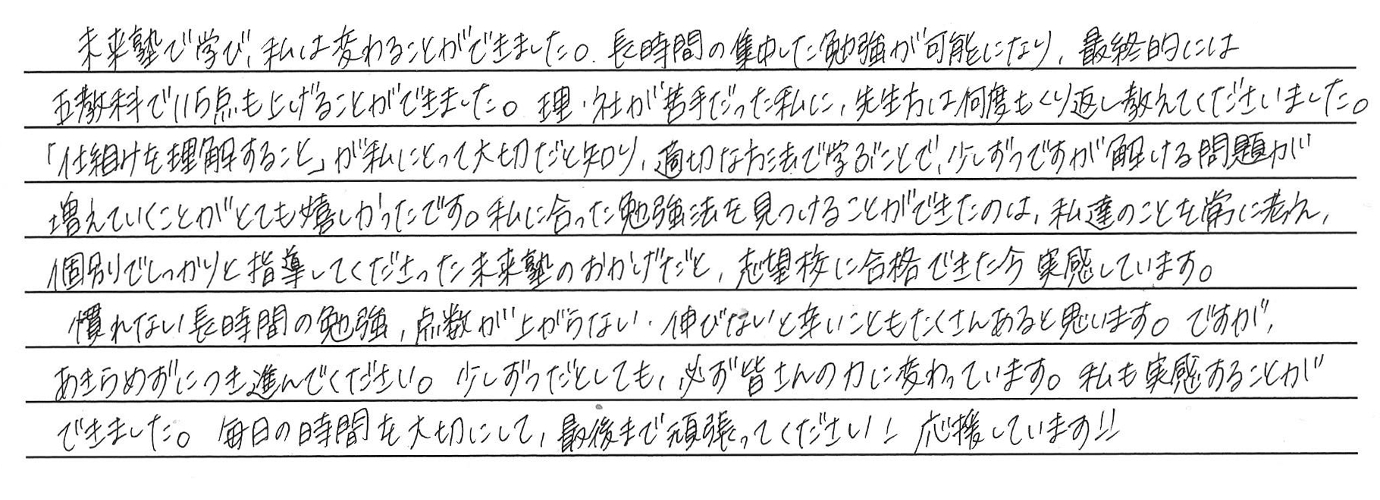 未来塾で学び、私は変わることができました。長時間の集中した勉強が可能になり、最終的には
五教科で115点も上げることができました。理・社が苦手だった私に、先生方は何度もくり返し教えてくださいました。
「仕組けを理解すること」が私にとって大切だと知り、適切な方法で学ぶことで、少しずつですが解ける問題が
増えていくことがとても嬉しかったです。私に合った勉強法を見つけることができたのは、私達のことを常に考え、
個別でしっかりと指導してくださった未来塾のおかげだと、志望校に合格できた今実感しています。
慣れない長時間の勉強、点数が上がらない・伸びないと辛いこともたくさんあると思います。ですが、
あきらめずにつき進んでください。少しずつだとしても、必ず皆さんの力に変わっています。私も実感することが
できました。毎日の時間を大切にして、最後まで頑張ってください！応援しています!!